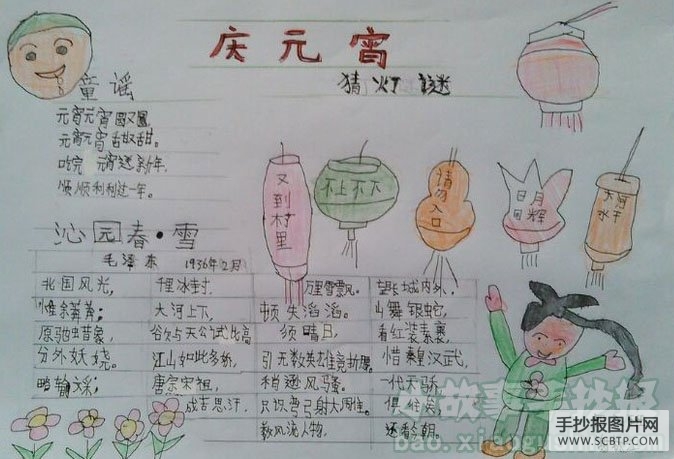 庆元宵
猜灯谜
童谣
元宵元宵圆又圆
元宵元宵甜又甜。
吃完元宵送新年,
顺顺利利过一年。
又到村里
不上不下
请勿入口
日月同辉
大河水干
沁园春·雪
毛泽东 1936年2月
北国风光, 千里冰封, 万里雪飘。 望长城内外,
惟余莽莽; 大河上下, 顿失滔滔。 山舞银蛇,
原驰蜡象, 欲与天公试比高 须晴日, 看红装素裹,
分外妖娆。 江山如此多娇, 引无数英雄竞折腰。 惜秦皇汉武,
略输文采; 唐宗宋祖, 稍逊风骚。 一代天骄,
成吉思汗, 只识弯弓射大雕。 俱往矣,
数风流人物, 还看今朝。
手抄报图片网
WWW.SCBTP.COM